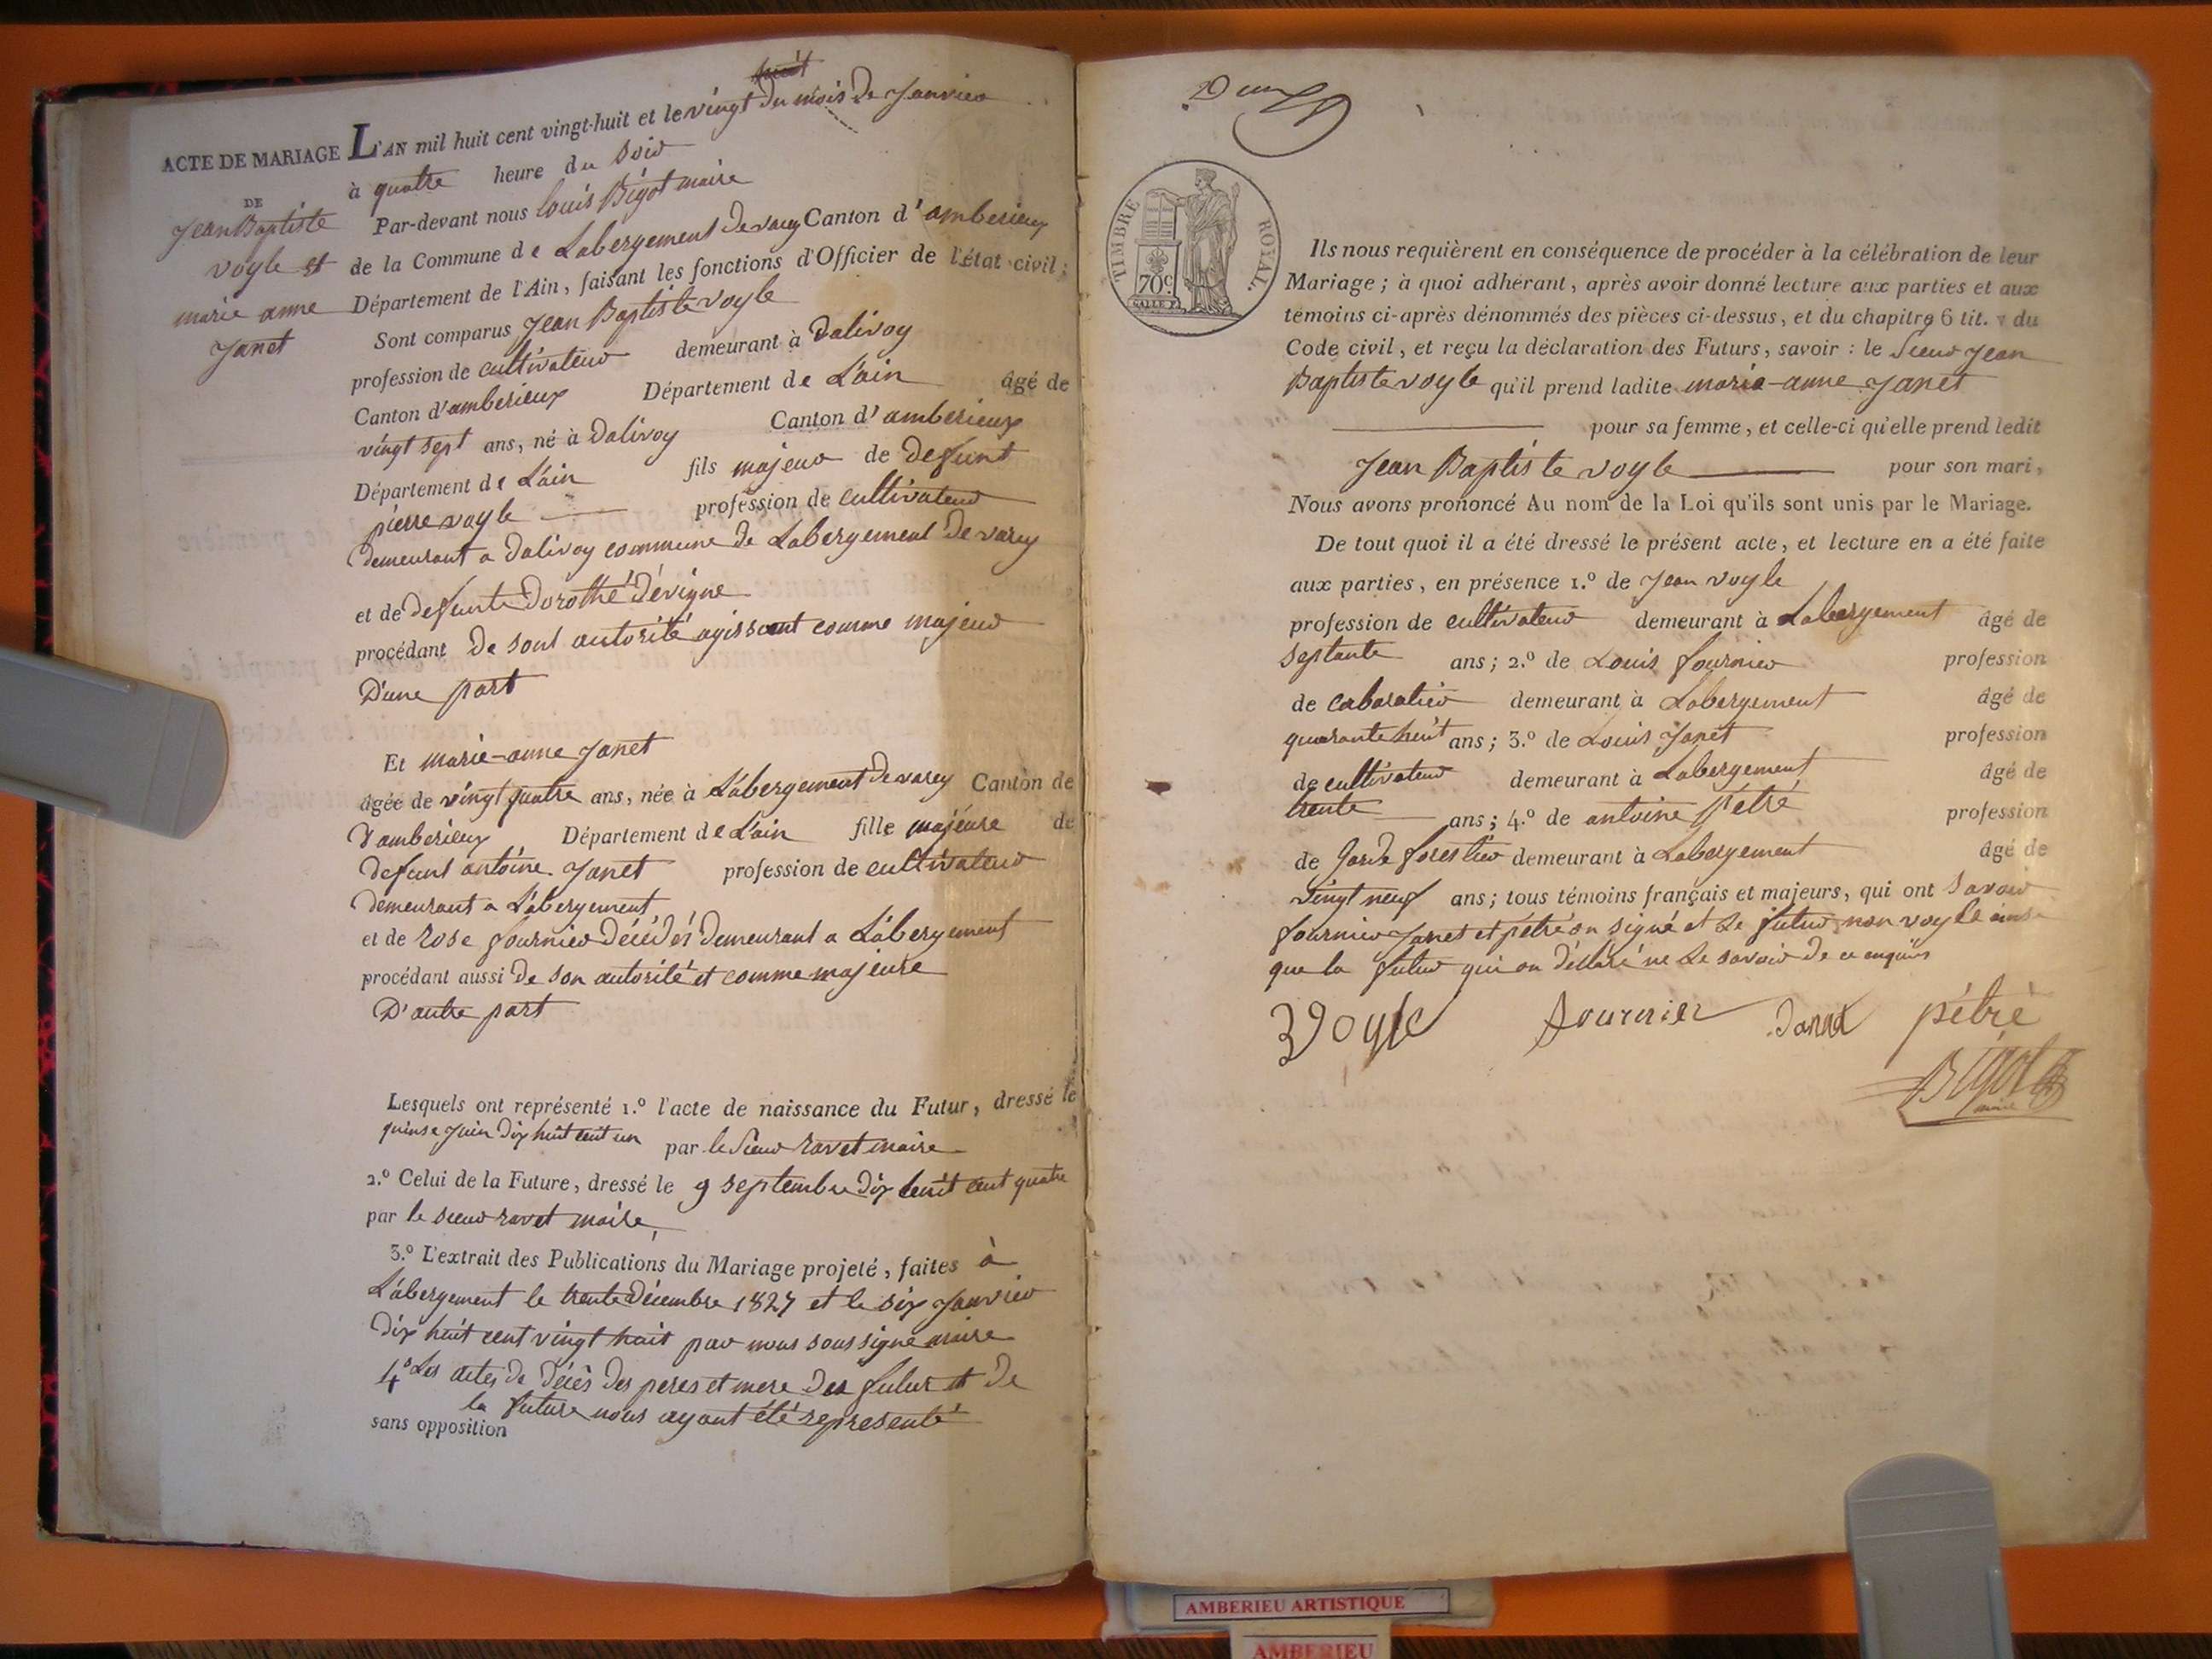 huit
ACTE DE MARIAGE L'AN mil huit cent vingt-huit et le vingt du mois de Janvier
à quatre heure du Soir
DE
Jean Baptiste
voyle et
marie anne
Janet
Par-devant nous Louis Bigot maire
de la Commune de Labergement de varey Canton d'amberieux
Département de l'Ain, faisant les fonctions d'Officier de l'état civil;
Sont comparus Jean Baptiste voyle
profession de cultivateur demeurant à Dalivoy
Canton d'amberieux Département de L'ain âgé de
vingt sept ans, né à Dalivoy Canton d'amberieux
Département de L'ain fils majeur de defunt
pierre voyle profession de cultivateur
demeurant a Dalivoy commune de Labergement de varey
et de defunte Dorothé dévigne
procédant de sont autorité agissant comme majeur
D'une part
Et marie-anne Janet
âgée de vingt quatre ans, née à Labergement de varey Canton de
d'amberieux Département de L'ain fille majeure de
defunt antoine Janet profession de cultivateur
demeurant a L'abergement
et de rose fournier demeurant a L'abergement
procédant aussi de son autorité et comme majeure
D'autre part
Lesquels ont représenté 1.º l'acte de naissance du Futur, dressé le
quinse Juin dix huit cent un par le sieur ravet maire
2.º Celui de la Future, dressé le 9 septembre dix huit cent quatre
par le sieur ravet maire,
3.º L'extrait des Publications du Mariage projeté, faites à
L'abergement le trente décembre 1827 et le six Janvier
dix huit cent vingt huit par nous soussigné maire
4º Les actes de décès des peres et mere des futur et de
la future nous ayant été representé
sans opposition
TIMBRE ROYAL.
70c.
Ils nous requièrent en conséquence de procéder à la célébration de leur
Mariage; à quoi adhérant, après avoir donné lecture aux parties et aux
témoins ci-après dénommés des pièces ci-dessus, et du chapitre 6 tit. v du
Code civil, et reçu la déclaration des Futurs, savoir: le Sieur Jean
Baptiste voyle qu'il prend ladite maria-anne Janet
pour sa femme, et celle-ci qu'elle prend ledit
Jean Baptiste voyle pour son mari,
Nous avons prononcé Au nom de la Loi qu'ils sont unis par le Mariage.
De tout quoi il a été dressé le présent acte, et lecture en a été faite
aux parties, en présence 1.º de Jean voyle
profession de cultivateur demeurant à Labergement âgé de
septante ans; 2.º de Louis fournier profession
de cabaratier demeurant à Labergement âgé de
quarante huit ans; 3.º de Louis Janet profession
de cultivateur demeurant à Labergement âgé de
trente ans; 4.º de antoine pétré profession
de garde forestier demeurant à Labergement âgé de
vingt neuf ans; tous témoins français et majeurs, qui ont savoir
fournier Janet et pétré on signé et le futur non voyle ainsi
que la futur qui on déclaré ne le savoir de ce enquis
Voyle fournier Janet pétré
Bigot
maire
AMBERIEU ARTISTIQUE
AMBERIEU